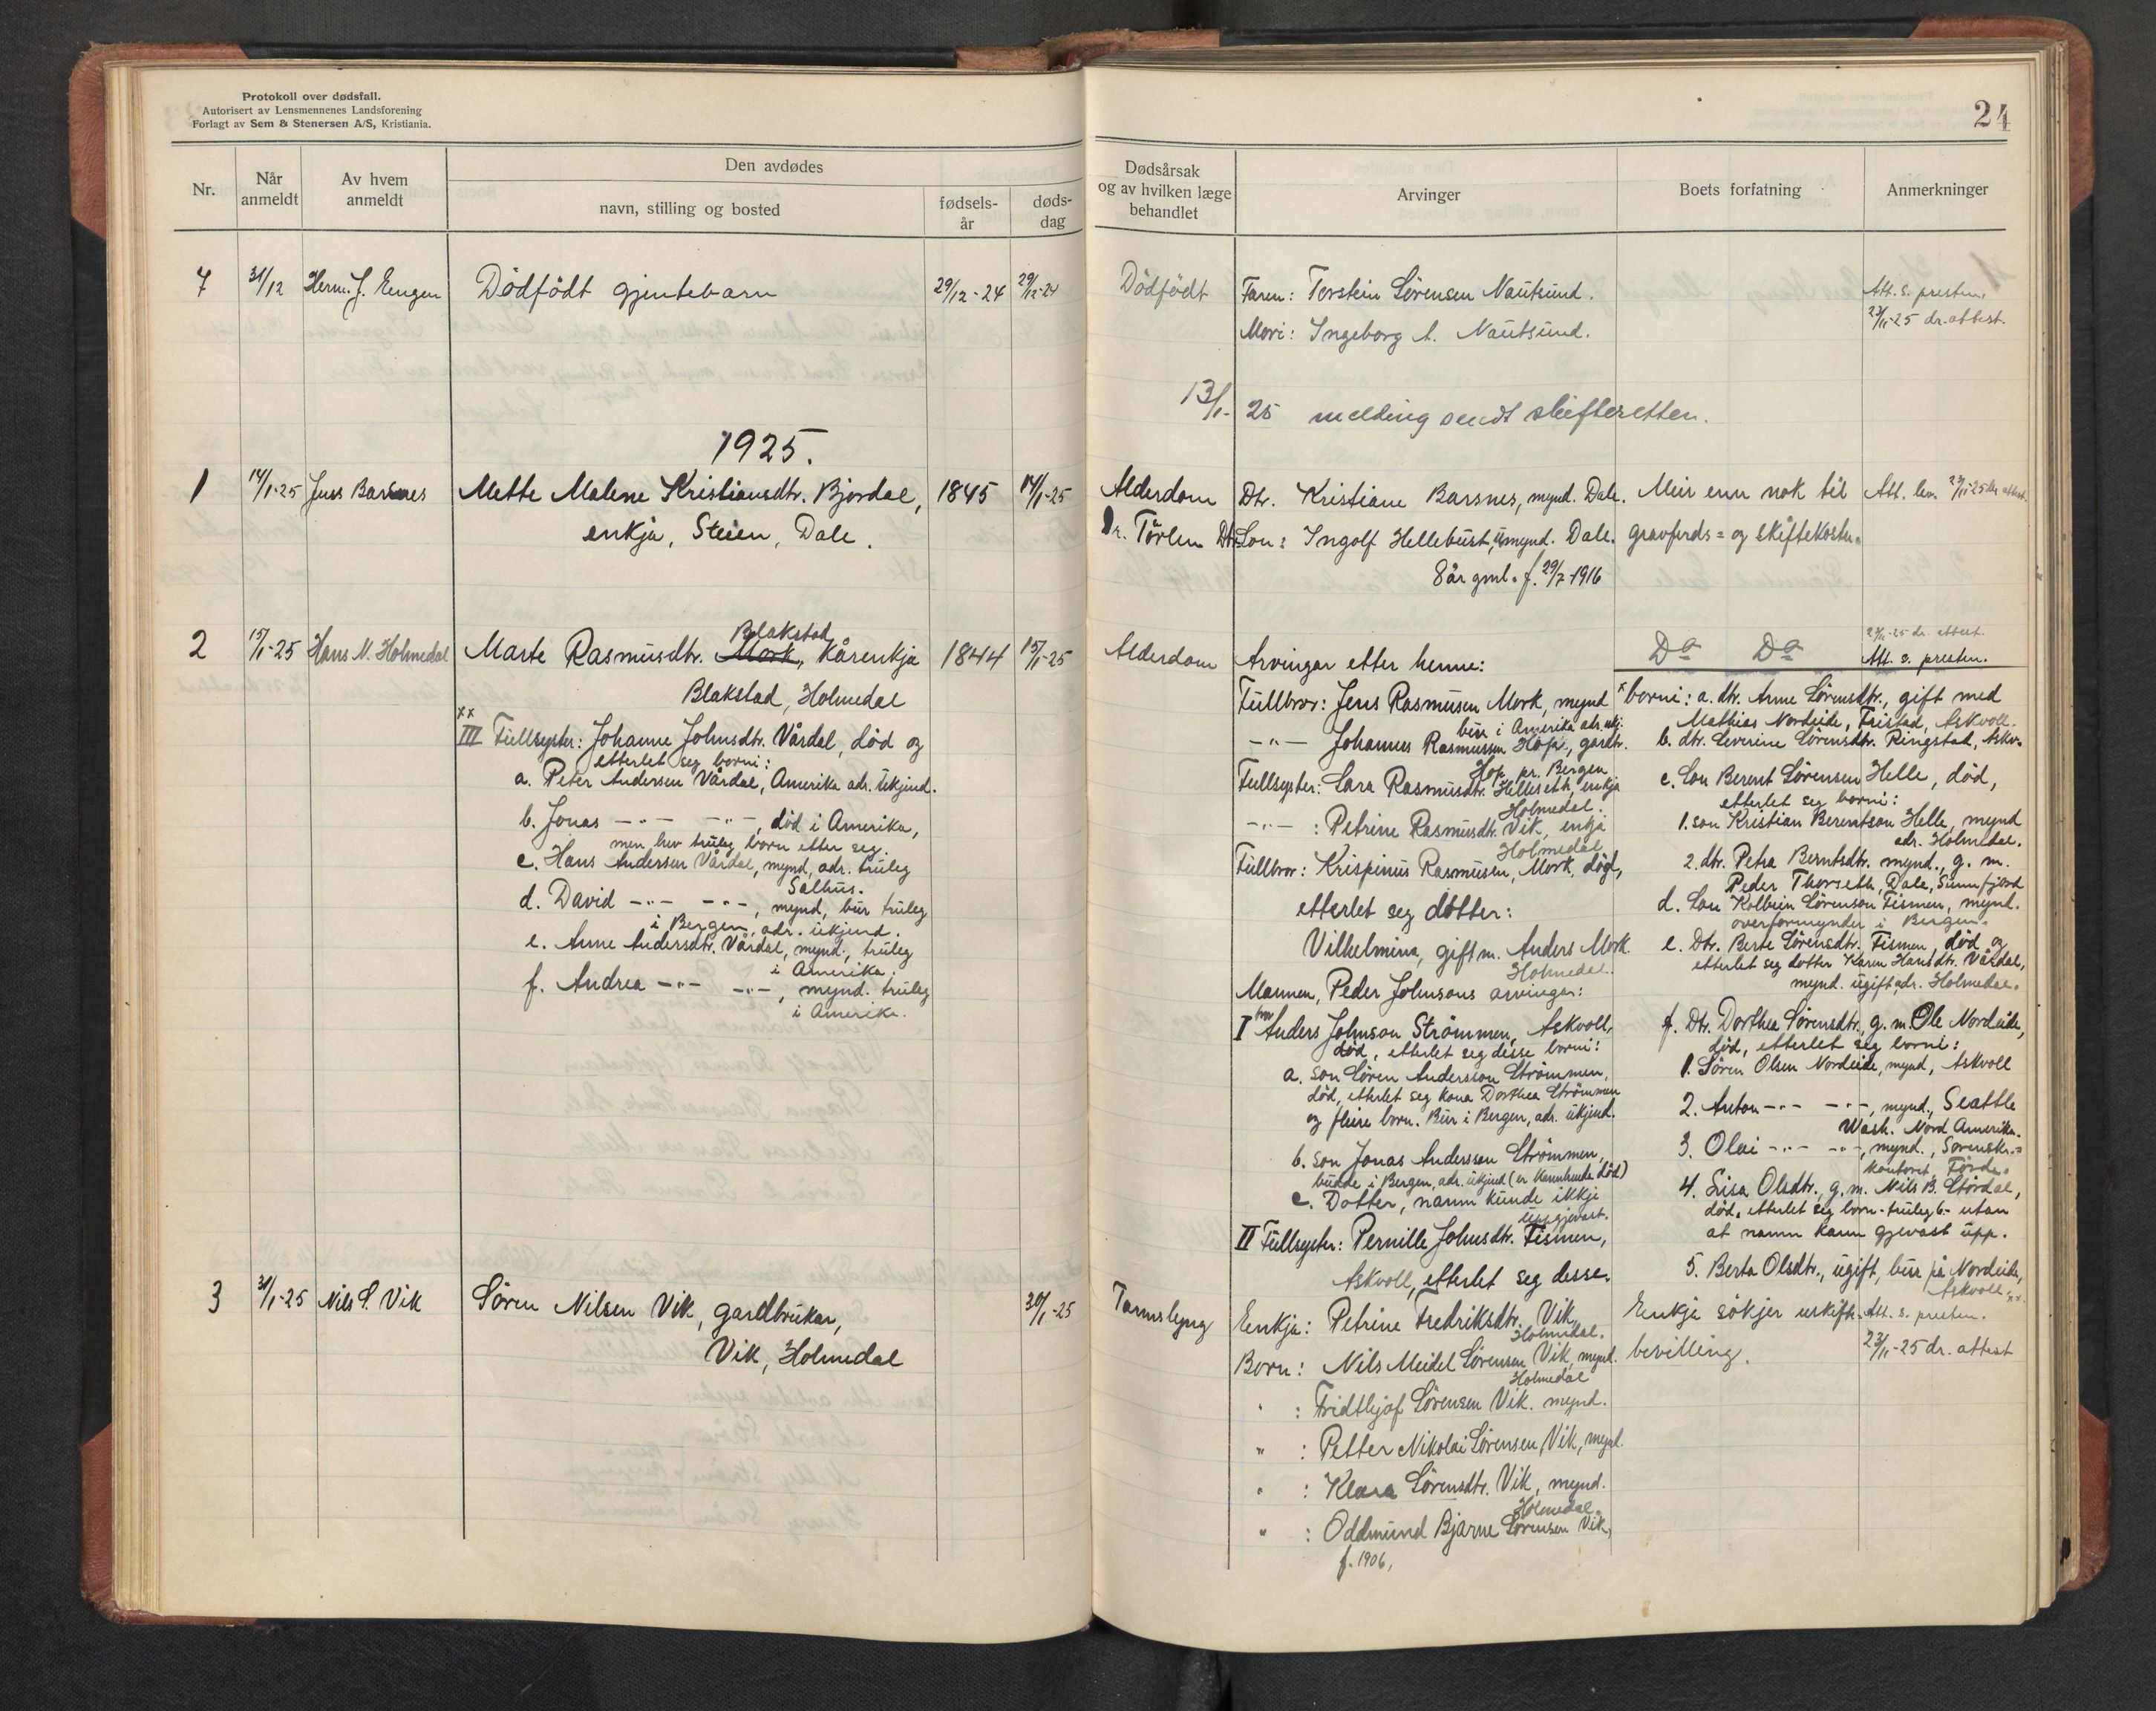 Protokoll over dødsfall.
Autorisert av Lensmennenes Landsforening
Forlagt av Sem & Stenersen A/S, Kristiania.
Nr.
Når anmeldt
Av hvem anmeldt
Den avdødes
navn, stilling og bosted
fødsels-år
døds-dag
7 31/12 Herm. J. Engen Dödfödt gjentebarn 29/12-24 29/12-24
1925.
1 14/1-25 Jens Barsnes Mette Malene Kristiansdtr. Bjordal, 1845 14/1-25
enkja, Steien, Dale.
Blakstad
2 15/1-25 Hans N. Holmedal Marte Rasmusdtr. Mork, Kårenkja 1844 15/1-25
Blakstad, Holmedal
xx
III Fullsyster: Johanne Johnsdtr. Vårdal, död og
etterlet seg borni:
a. Peter Andersen Vårdal, Amerika adr. ukjend.
b. Jonas -"- -"-, död i Amerika,
men hev truleg born etter seg.
c. Hans Andersen Vårdal, mynd, adr. truleg
Salhus.
d. David -"- -"-, mynd, bur truleg
i Bergen, adr. ukjend.
e. Anne Andersdtr. Vårdal, mynd., truleg
i Amerika.
f. Andrea -"- -"-, mynd. truleg
i Amerika.
3 31/1-25 Nils S. Vik Sören Nilsen Vik, gardbrukar, 30/1-25
Vik, Holmedal
24
Dødsårsak
og av hvilken læge
behandlet
Arvinger
Boets forfatning
Anmerkninger
Dödfödt Faren: Torstein Sörensen Nautsund. Att. s. presten.
23/11-25 dr. attest.
Mori: Ingeborg A. Nautsund.
13/1-25 melding sendt skifteretten.
Alderdom Dtr. Kristiane Barsnes, mynd. Dale. Meir enn nok til Att. lev.
Dr. Törlen Dtr.Son: Ingolf Hellebust, umynd. Dale. gravferds= og skiftekostn.
8 år gml. f. 29/7-1916
Alderdom Arvingar etter henne: Do Do
dr. attest.
Att. s. presten.
Fullbror: Jens Rasmusen Mork, mynd
bur i Amerika adr. ukj.
-"- Johannes Rasmussen Hop, gardbr.
Hop pr. Bergen
Fullsyster: Sara Rasmusdtr. Helleseth, enkja
Holmedal.
-"- : Petrine Rasmusdtr. Vik, enkja
Holmedal
Fullbror: Krispinus Rasmusen, Mork, död,
etterlet seg dotter:
Vilhelmina, gift m. Anders Mork
Holmedal.
Mannen, Peder Johnsons arvingar:
I bror Anders Johnson Strömmen, Askvoll,
död, etterlet seg desse borni:
a. son Sören Andersson Strömmen,
död, etterlet seg kona Dorthea Strömmen
og fleire born. Bur i Bergen, adr. ukjend.
b. son Jonas Andersson Strömmen,
budde i Bergen, adr. ukjend (er kannhenda död)
c. Dotter, namn kunde ikkje
uppgjevast.
II Fullsyster: Pernille Johnsdtr. Fismen,
Askvoll, etterlet seg desse
x borni: a. dtr. Anne Sörensdtr., gift med
Mathias Nordeide, Fristad, Askvoll.
b. dtr. Severine Sörensdtr. Ringstad, Askv.
c. Son Berent Sörensen Helle, död,
etterlet seg borni:
1. son Kristian Berentson Helle, mynd
adr. Holmedal.
2. dtr. Petra Berntsdtr. mynd., g. m.
Peder Thorseth, Dale, Sunnfjord
d. Son Kolbein Sörenson Fismen, mynd.
overformynder i Bergen.
e. Dtr. Berte Sörensdtr. Fismen, död og
etterlet seg dotter Karen Hansdtr. Vårdal,
mynd. ugift, adr. Holmedal.
f. Dtr. Dorthea Sörensdtr., g. m. Ole Nordeide,
död, etterlet seg borni:
1. Sören Olsen Nordeide, mynd, Askvoll
2. Anton -"- -"-, mynd., Seattle
Wash. Nord Amerika.
3. Olai -"- -"-, mynd., Sorenskr.=
kontoret, Förde.
4. Lisa Olsdtr., g. m. Nils B. Stördal,
död, etterlet seg born - truleg 6 - utan
at namn kann gjevast upp.
5. Berta Olsdtr., ugift, bur på Nordeide,
Askvoll. xx
Tarmslyng Enkja: Petrine Fredriksdtr. Vik, Enkja sökjer uskift. Att. s. presten.
Holmedal.
Born: Nils Meidel Sörensen Vik, mynd. bevilling. 23/11-25 dr. attest
Holmedal
" : Fridthjof Sörensen Vik. mynd.
" : Petter Nikolai Sörensen Vik, mynd.
" : Klara Sörensdtr. Vik, mynd.
Holmedal.
" : Oddmund Bjarne Sörensen Vik,
f. 1906,